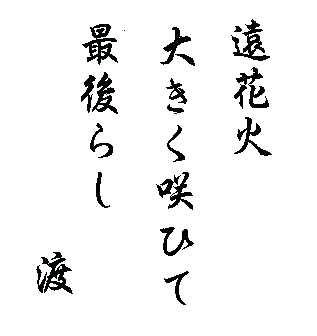 遠花火
大きく咲ひて
最後らし
渡